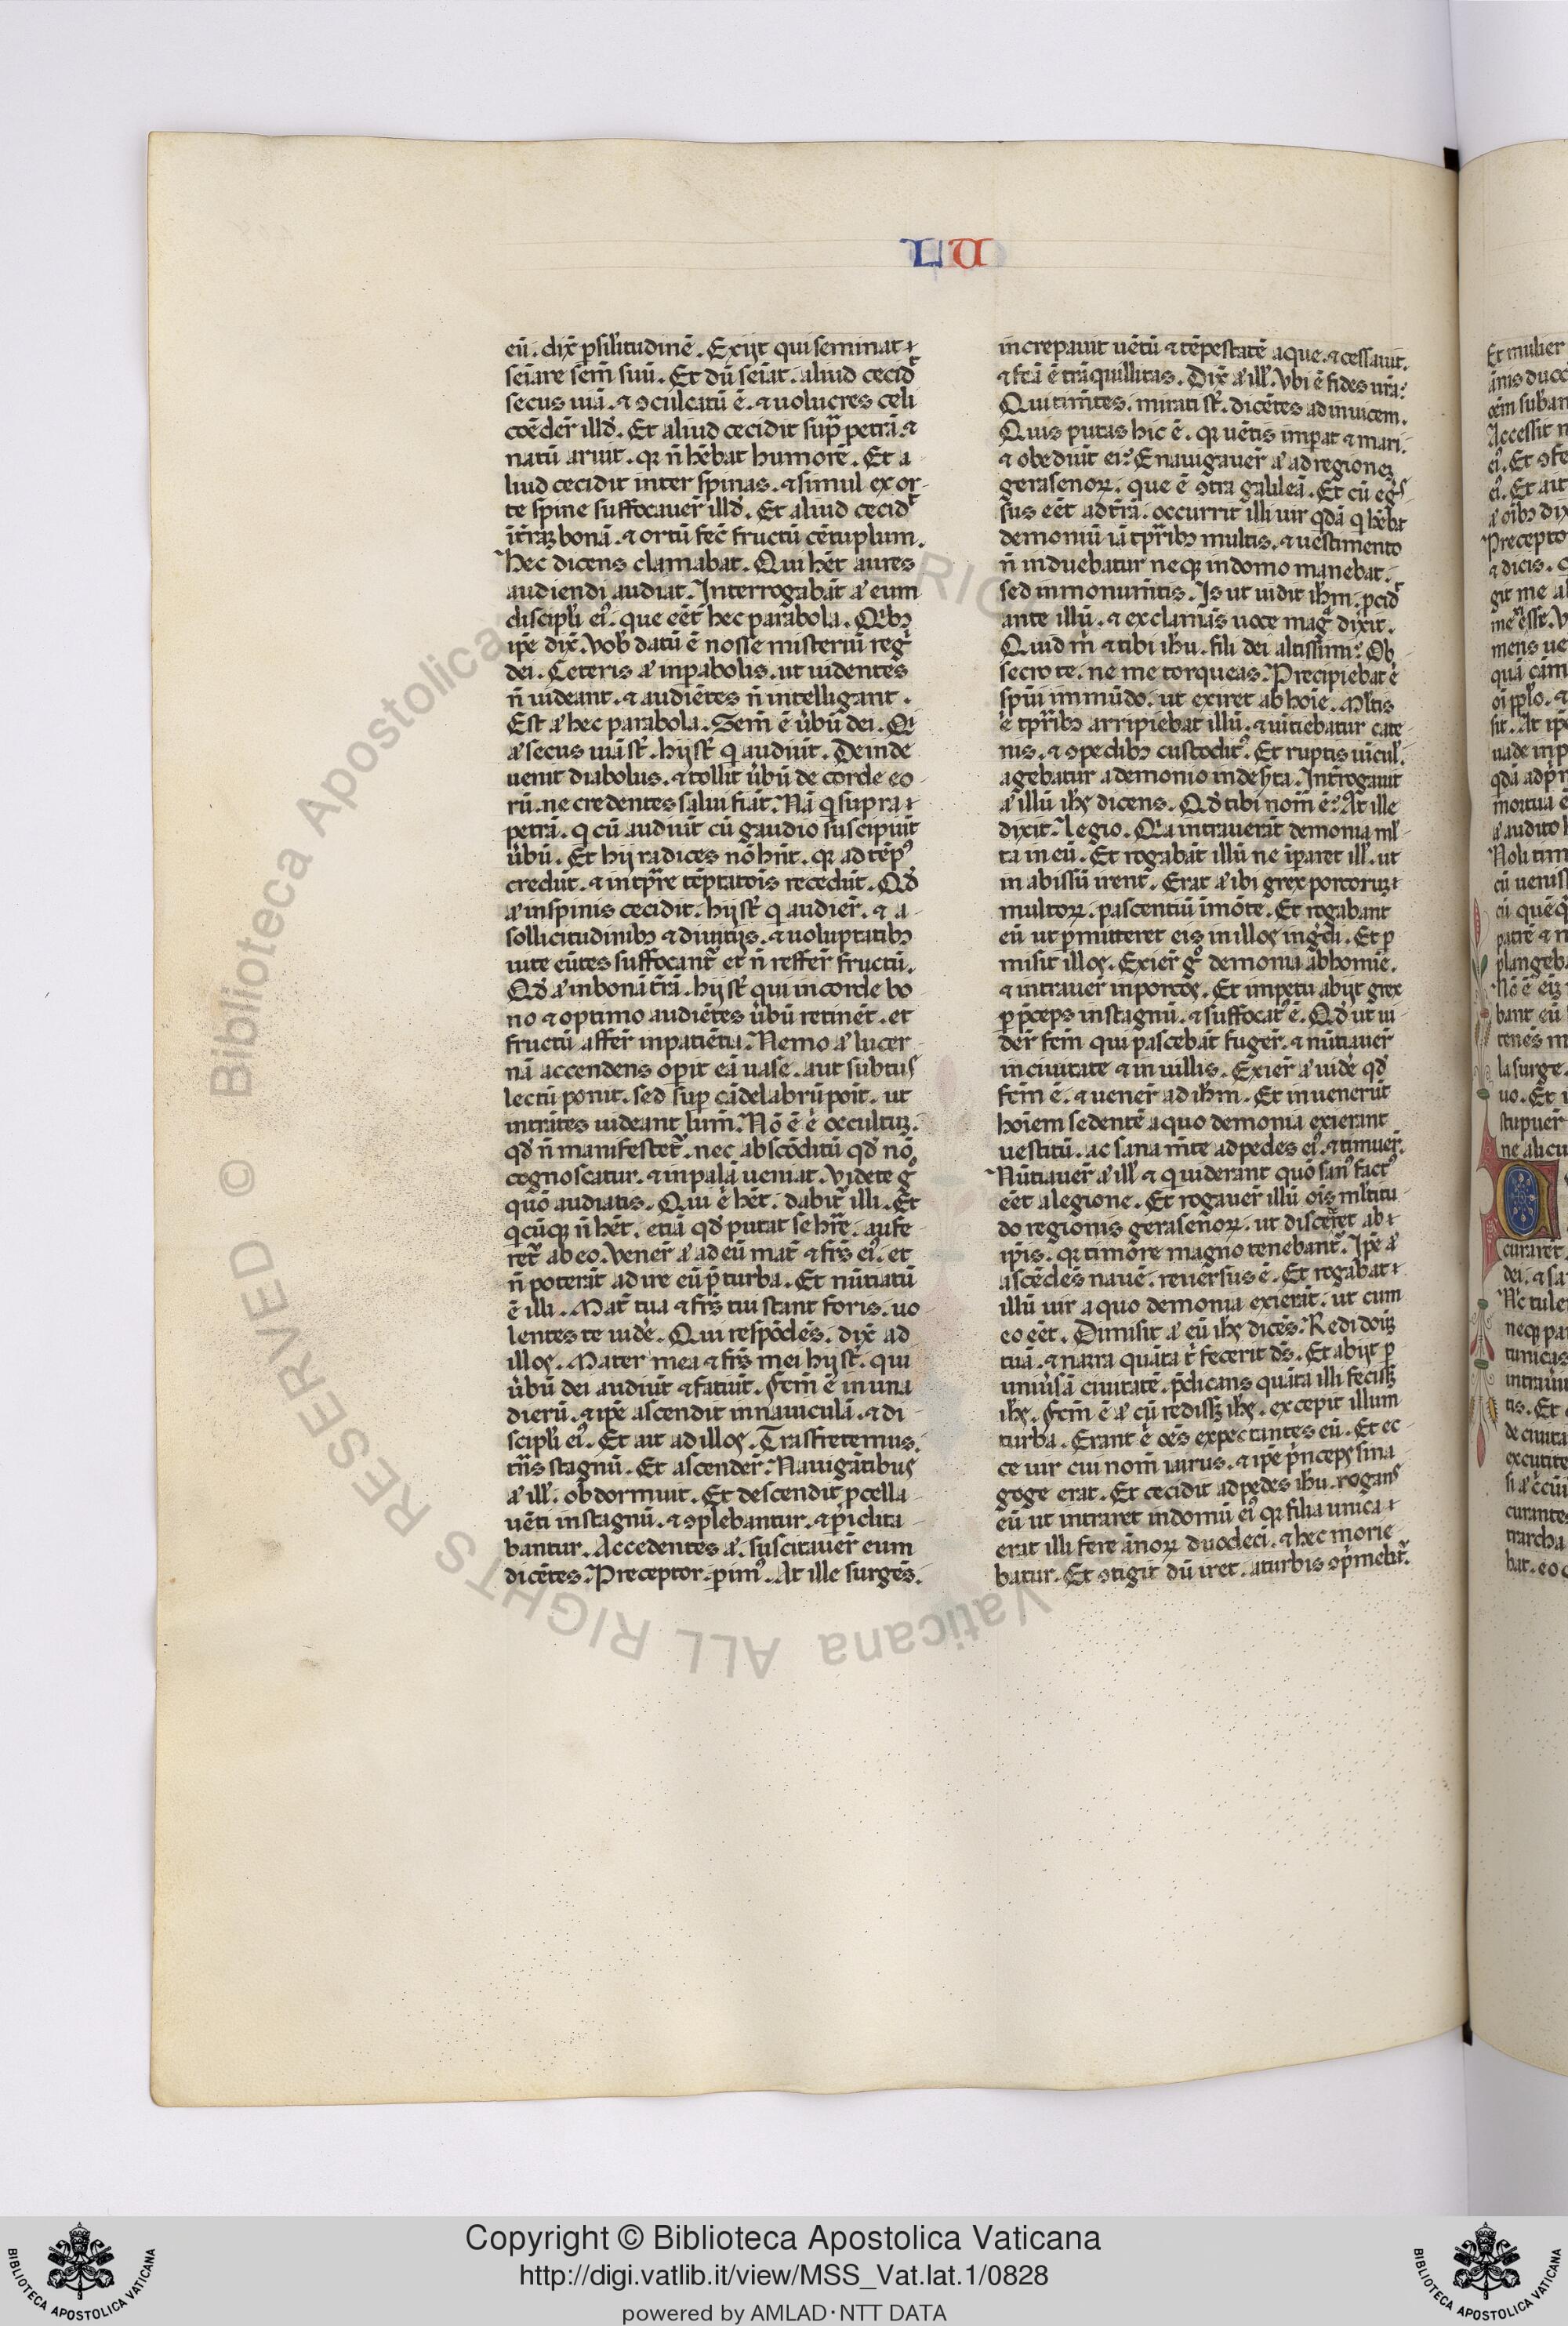 LU
eū. dix̄ p̱silitudinē. Exijt qui seminat ⁊
seīare sem̄ suū. Et dū seīat. aliud cecid᷑
secus uiā. ⁊ ꝯculcatū ē. ⁊ uolucres celi
coēder̄ illd̄. Et aliud cecidit sup̄ petrā. ⁊
natū aruit. qꝛ n̄ hēbat humorē. Et a
liud cecidit inter spinas. ⁊ simul exor-
te spine suffocauer̄ illd̄. Et aliud cecid᷑
īt̄raꝫ bonā. ⁊ ortū fec̄ fructū cētuplum.
Hec dicens clamabat. Qui hēt aures
audiendi audiat. Interrogabāt aͥ eum
discipli eiꝰ. que eēt hec parabola. Qͥbꝫ
ip̄e dix̄. Vob̄ datū ē nosse misteriū reḡ
dei. Ceteris aͥ inp̱abolis. ut uidentes
n̄ uideant. ⁊ audiētes n̄ intelligant.
Est aͥ hec parabola. Sem̄ ē ůbū dei. Qͥ
aͥ secus uiā st̄. hij st̄ q̇ audiūt. Deinde
uenit diabolus. ⁊ tollit ůbū de corde eo-
rū. ne credentes salui fiāt. Nā q̇ supra ⁊
petrā. q̇ cū audiūt cū gaudio suscipiūt
ůbū. Et hij radices nō hn̄t. qꝛ ad tēpꝰ
credūt. ⁊ in tp̄re tēptatois recedūt. Qd̄
aͥ inspinis cecidit. hij st̄ q̇ audier̄. ⁊ a-
sollicitudinibꝫ ⁊ diuitijs. ⁊ uoluptatibꝫ
uite eūtes suffocant᷑ et n̄ reffer̄ fructū.
Qd̄ aͥ inbonā t̄rā. hij st̄ qui incorde bo-
no ⁊ optimo audiētes ůbū retinēt. et
fructū affer̄ inpatiētia. Nemo aͥ lucer-
nā accendens op̱it eā uase. aut subtus
lectū ponit. sed sup̱ cādelabrū poīt. ut
intrātes uideant lum̄. Nō ē ė occultuꝫ.
qd̄ n̄ manifestet᷑. nec abscōditū qd̄ nō
cognoscatur. ⁊ inpalā ueniat. Videte gͦ
quō audiatis. Qui ė hēt. dabit᷑ illi. Et
q̇cūqꝫ n̄ hēt. etiā qd̄ putat se hr̄e. aufe-
ret᷑ ab eo. Vener̄ aͥ ad eū mat̄ ⁊ fr̄s eiꝰ. et
n̄ poterāt adire eū p̄ turba. Et nūtiatū
ē illi. Mat̄ tua ⁊ fr̄s tui stant foris. uo-
lentes te uidē. Qui respōdēs. dix̄ ad
illos. Mater mea ⁊ fr̄s mei hij st̄. qui
ůbū dei audiūt ⁊ fatiūt. Fcm̄ ē in una
dierū. ⁊ ip̄e ascendit innauiculā. ⁊ di-
scipli eiꝰ. Et ait ad illos. Trasfretemus
tn̄s stagnū. Et ascender̄. Nauigātibus
aͥ ill̄. obdormiuit. Et descendit p̱cella
uēti instagnū. ⁊ ꝯplebantur. ⁊ p̱iclita-
bantur. Accedentes aͥ. suscitauer̄ eum
dicētes. Preceptor. p̱imꝰ. At ille surgēs.
increpauit uētū ⁊ tēpestatē aque. ⁊ cessauit.
⁊ fcā ē trāquillitas. Dix̄ aͥ ill̄. Vbi ē fides ur̄a.
Qui tim̄tes. mirati st̄. dicētes adinuicem.
Quis putas hic ē. qꝛ uētis imp̱at ⁊ mari.
⁊ obediūt ei. Enauigauer̄ aͥ ad regioneꝫ
gerasenoꝝ. que ē ꝯtra galileā. Et cū eg̈s
sus eēt ad t̄rā. occurrit illi uir q̇dā q̇ hēbt
demoniū iā tp̄ribꝫ multis. ⁊ uestimento
n̄ induebatur neqꝫ indomo manebat.
sed inmonum̄tis. Is ut uidit ih̄m. p̱cid᷑
ante illū. ⁊ exclamās uoce mag̈ dixit.
Quid m̄ ⁊ tibi ih̄u. fili dei altissimi. Ob
secro te. ne me torqueas. Precipiebat ė
sp̄ui immūdo. ut exiret ab hoīe. Mltis
ė tp̄ribꝫ arripiebat illū. ⁊ uītiebatur cate-
nis. ⁊ ꝯpedibꝫ custoditꝰ. Et ruptis uīcul̄.
agebatur ademonio indes̄ta. Int̄rogauit
aͥ illū ih̄s dicens. Qd̄ tibi nom̄ ē. At ille
dixit. legio. Qͥa intrauerāt demonia ml̄-
ta in eū. Et rogabāt illū ne īparet ill̄. ut
in abissū irent᷑. Erat aͥ ibi grex porcoruꝫ ⁊
multoꝝ. pascentiū imōte. Et rogabant
eū ut p̱mitteret eis in illos ing̈di. Et p̱-
misit illos. Exier̄ gͦ demonia abhomīe.
⁊ intrauer̄ inporcos. Et impetu abijt grex
p̱ p̄ceps instagnū. ⁊ suffocat᷑ ē. Qd̄ ut ui-
der̄ fcm̄ qui pascebāt fuger̄. ⁊ nūtiauer̄
inciuitate ⁊ in uillis. Exier̄ aͥ uidē qd̄
fcm̄ ē. ⁊ uener̄ ad ih̄m. Et inuenerūt
hoīem sedentē aquo demonia exierant
uestitū. ac sana m̄te ad pedes eiꝰ. ⁊ timuer̄.
Nūtiauer̄ aͥ ill̄ ⁊ q̇ uiderant quō sanꝰ factꝰ
eēt alegione. Et rogauer̄ illū oīs ml̄titu-
do regionis gerasenoꝝ. ut discēret ab ⁊
ip̄is. qꝛ timore magno tenebant᷑. Ip̄e aͥ
ascēdēs nauē. reuersus ē. Et rogabat ⁊
illū uir aquo demonia exierāt. ut cum
eo eēt. Dimisit aͥ eū ih̄s dicēs. Redi doīꝫ
tuā. ⁊ narra quāta t̄ fecerit ds̄. Et abijt p̱
uniůsā ciuitatē. p̄dicans quāta illi fecisꝫ
ih̄s. Fcm̄ ē aͥ cū redissꝫ ih̄s. excepit illum
turba. Erant ė oēs expectantes eū. Et ec-
ce uir cui nom̄ iairus. ⁊ ip̄e p̄nceps sina
goge erat. Et cecidit ad pedes ih̄u. rogans
eū ut intraret indomū eiꝰ qꝛ filia unica ⁊
erat illi fere ānoꝝ duodeci. ⁊ hec morie-
batur. Et ꝯtigit dū iret. aturbis ꝯp̄mebt᷑.
Et mulier
Accessit
Precepto
⁊ dicis.
git me
mens ue
mortua
Noli tim
cū uenis
la surge.
stupuer̄
ne alicu
curaret.
dei. ⁊ sa
neqꝫ
tunicas
de ciuita
excutite
curante
bat. eo
© Biblioteca Apostolica Vaticana ALL RIGHTS RESERVED
Copyright © Biblioteca Apostolica Vaticana
http://digi.vatlib.it/view/MSS_Vat.lat.1/0828
powered by AMLAD·NTT DATA
BIBLIOTECA APOSTOLICA VATICANA
BIBLIOTECA APOSTOLICA VATICANA